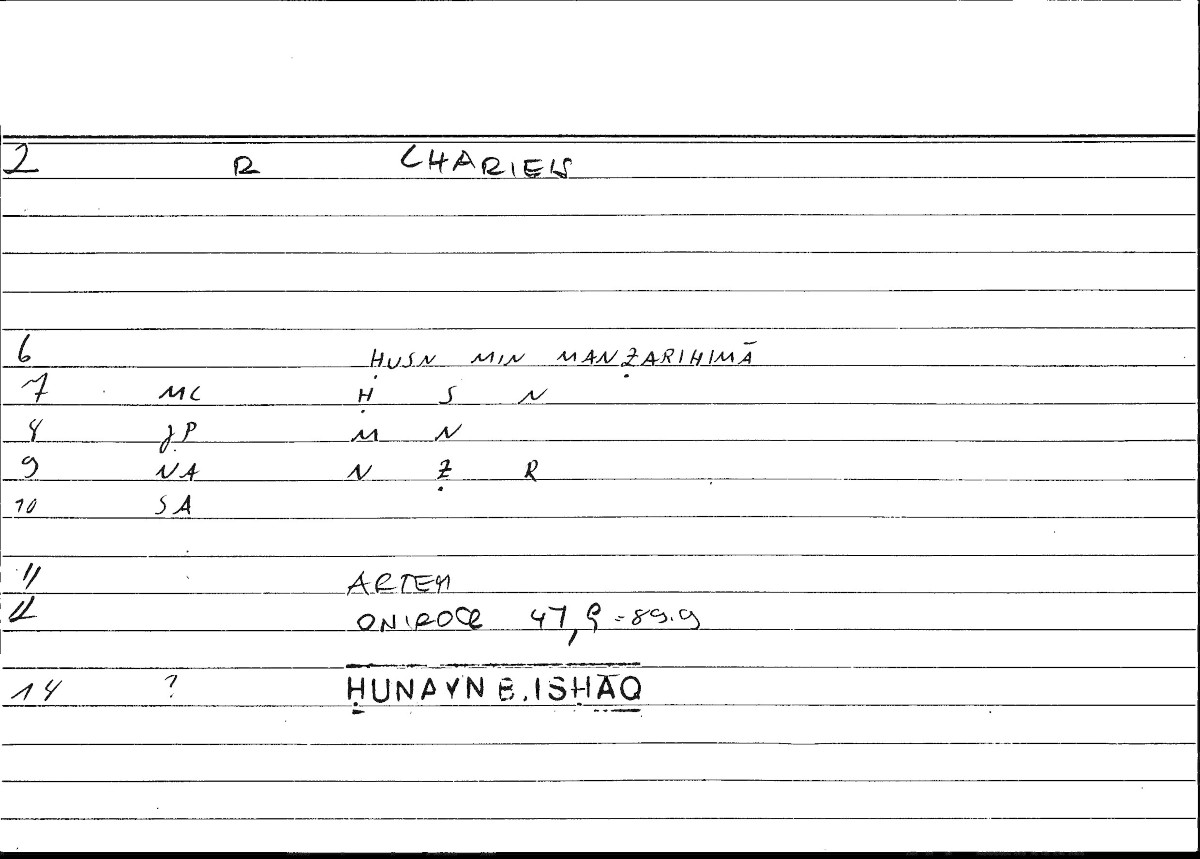 2 R CHARIEIS
6 ḤUSN MIN MANẒARIHIMĀ
7 MC Ḥ S N
8 JP M N
9 NA N Ẓ R
10 SA
11 ARTEM
12 ONIROCR 47,9 = 89.9
14 ? ḤUNAYN B. ISḤĀQ